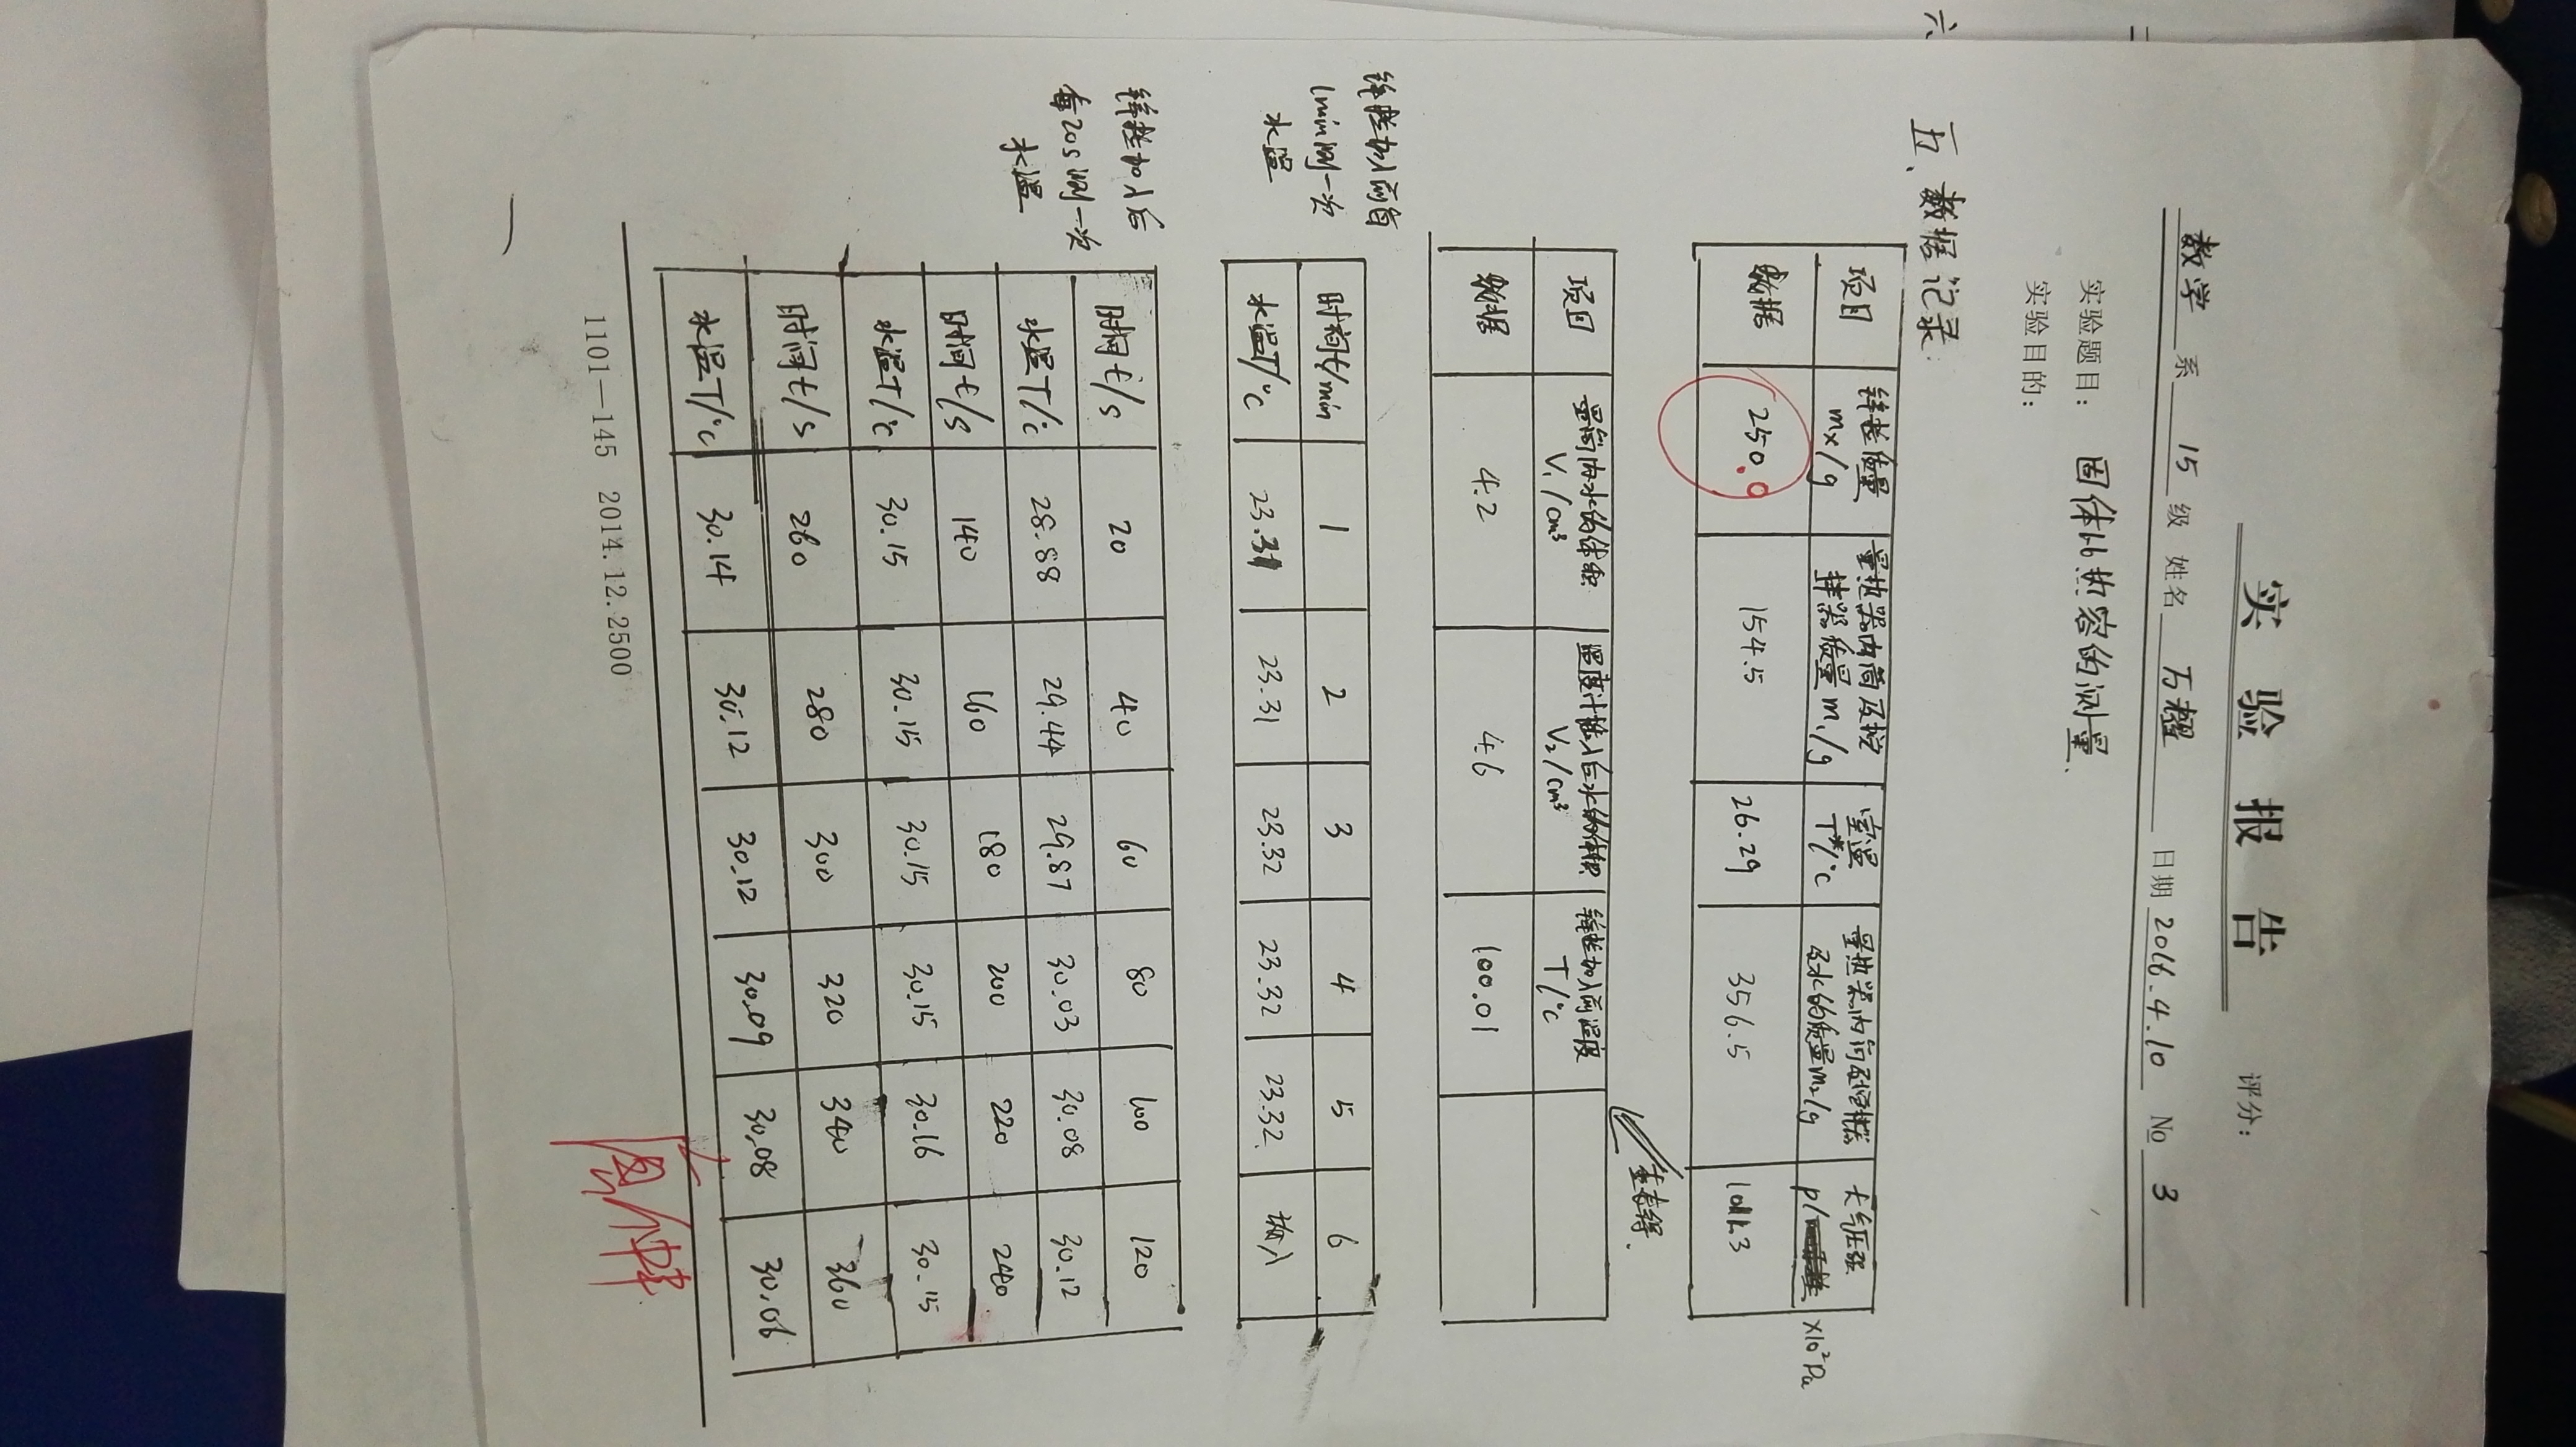 实验报告
评分:
数学 系 15 级 姓名 万超 日期 2016.4.10 No 3
实验题目: 固体比热容的测量
实验目的:
五、数据记录:
项目 锌粒质量 mx/g 量热器内筒及搅拌器质量m₁/g 室温 T/℃ 量热器内筒及搅拌器及水的质量m₂/g 大气压强 p/ ×10²Pa
数据 250.0 154.5 26.29 356.5 1011.3
查表得.
项目 量筒内水的体积 V₁/cm³ 温度计插入后水的体积 V₂/cm³ 锌粒加入前温度 T/℃
数据 4.2 4.6 100.01
锌粒加入前每
1min测一次
水温
时间t/min 1 2 3 4 5 6
水温T/℃ 23.31 23.31 23.32 23.32 23.32 投入
锌粒加入后
每20s测一次
水温
时间t/s 20 40 60 80 100 120
水温T/℃ 28.88 29.44 29.87 30.03 30.08 30.12
时间t/s 140 160 180 200 220 240
水温T/℃ 30.15 30.15 30.15 30.15 30.16 30.15
时间t/s 260 280 300 320 340 360
水温T/℃ 30.14 30.12 30.12 30.09 30.08 30.06
1101—145 2014.12.2500